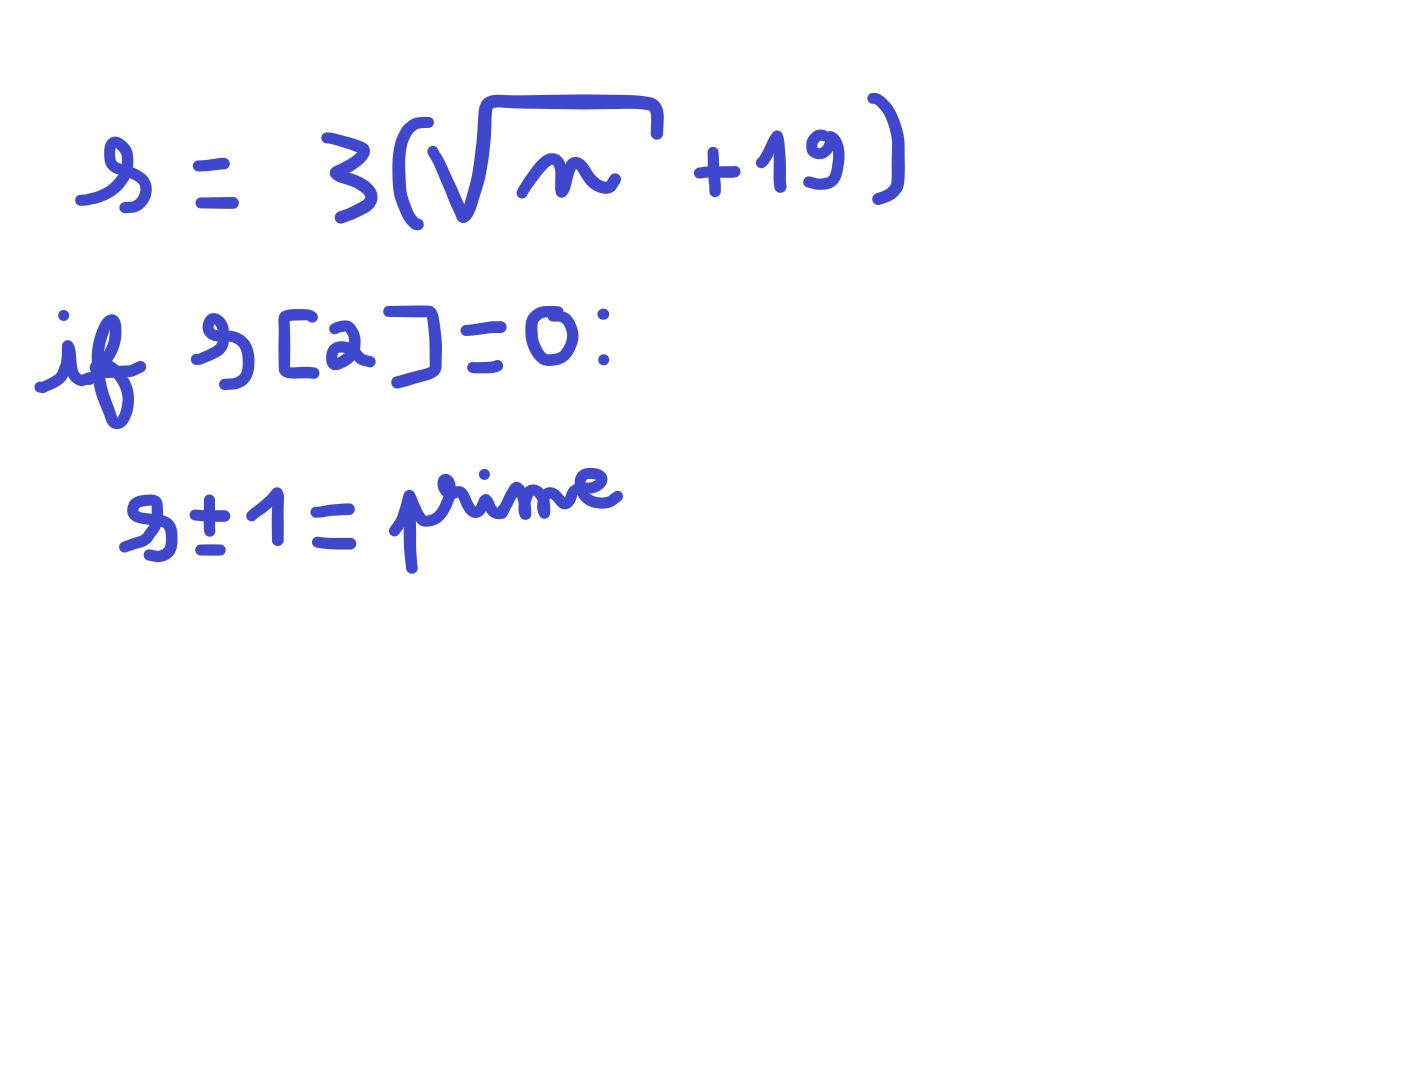 r = 3(√n + 19)
if r[2] = 0:
r ± 1 = prime